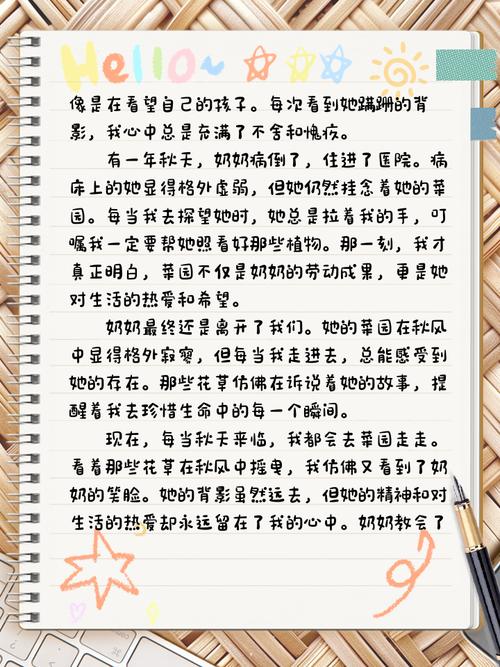 Hello~
像是在看望自己的孩子。每次看到她蹒跚的背
影，我心中总是充满了不舍和愧疚。
有一年秋天，奶奶病倒了，住进了医院。病
床上的她显得格外虚弱，但她仍然挂念着她的菜
园。每当我去探望她时，她总是拉着我的手，叮
嘱我一定要帮她照看好那些植物。那一刻，我才
真正明白，菜园不仅是奶奶的劳动成果，更是她
对生活的热爱和希望。
奶奶最终还是离开了我们。她的菜园在秋风
中显得格外寂寞，但每当我走进去，总能感受到
她的存在。那些花草仿佛在诉说着她的故事，提
醒着我去珍惜生命中的每一个瞬间。
现在，每当秋天来临，我都会去菜园走走。
看着那些花草在秋风中摇曳，我仿佛又看到了奶
奶的笑脸。她的背影虽然远去，但她的精神和对
生活的热爱却永远留在了我的心中。奶奶教会了